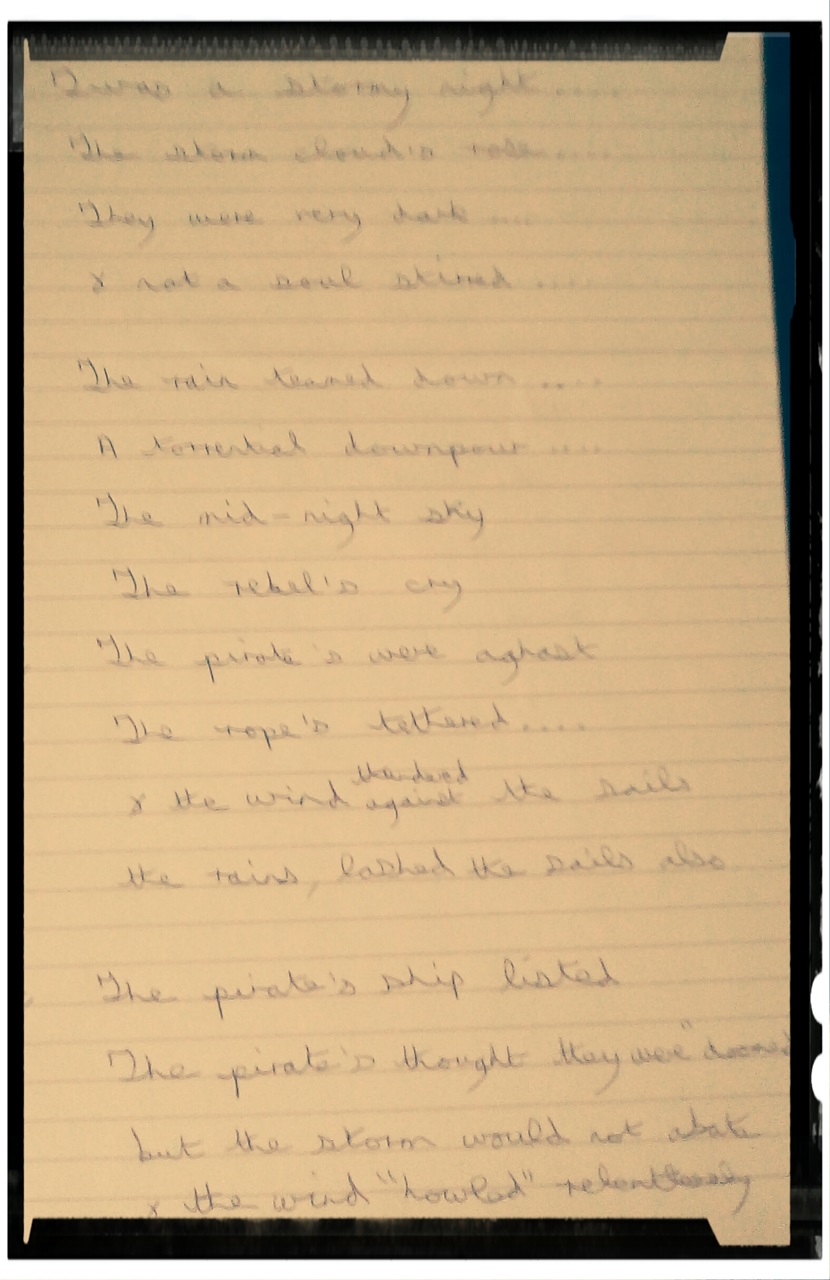 'Twas a stormy night.....
The storm cloud's rose.....
They were very dark ....
& not a soul stirred ....
The rain teamed down ....
A torrential downpour ....
The mid-night sky
The rebel's cry
The pirate's were aghast
The rope's tethered....
& the wind thundered against the sails
the rains, lashed the sails also
The pirate's ship listed
The pirate's thought they were "doomed
but the storm would not abate
& the wind "howled" relentlessly